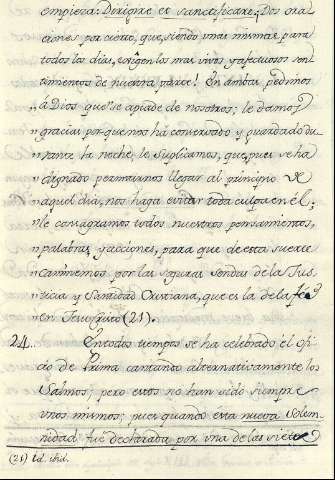 empieza: Dirigere et sanctificare; Dos ora
ciones por cierto, que, siendo unas mismas para
todos los dias, exigen los mas vivos y afectuosos sen
timientos de nuestra parte! En ambas pedimos
„ a Dios que se apiade de nosotros; le damos
„ gracias porque nos ha conservado y guardado du
„ rante la noche, le suplicamos, que, pues se ha
„ dignado permitirnos llegar al principio de
„ aquel dia, nos haga evitar toda culpa en él;
„ le consagramos todos nuestros pensamientos,
„ palabras, y acciones, para que de esta suerte
„ caminemos por las seguras sendas de la Jus
„ ticia y Santidad Cristiana, que es la de la fe
„ en Jesucristo (21).
24. En todos tiempos se ha celebrado el ofi
cio de Prima cantando alternativamente los
Salmos; pero estos no han sido siempre
unos mismos; pues quando esta nueva Solem
nidad fue declarada por una de las siete
(21) Id. ibid.